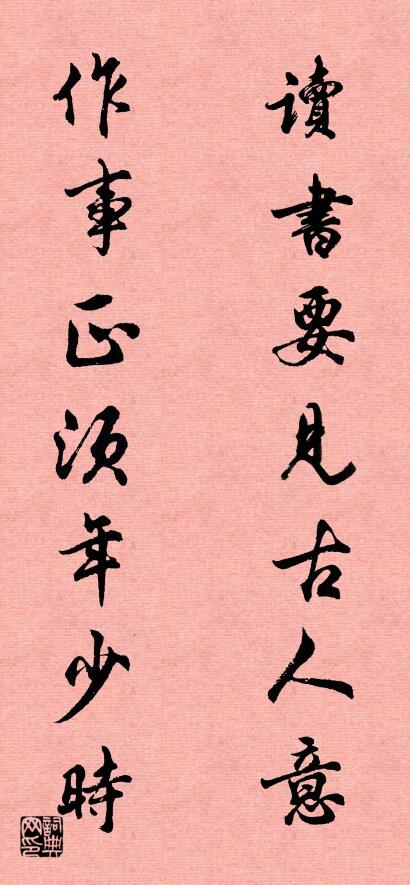 讀書要見古人意
作事正須年少時
詞典網印